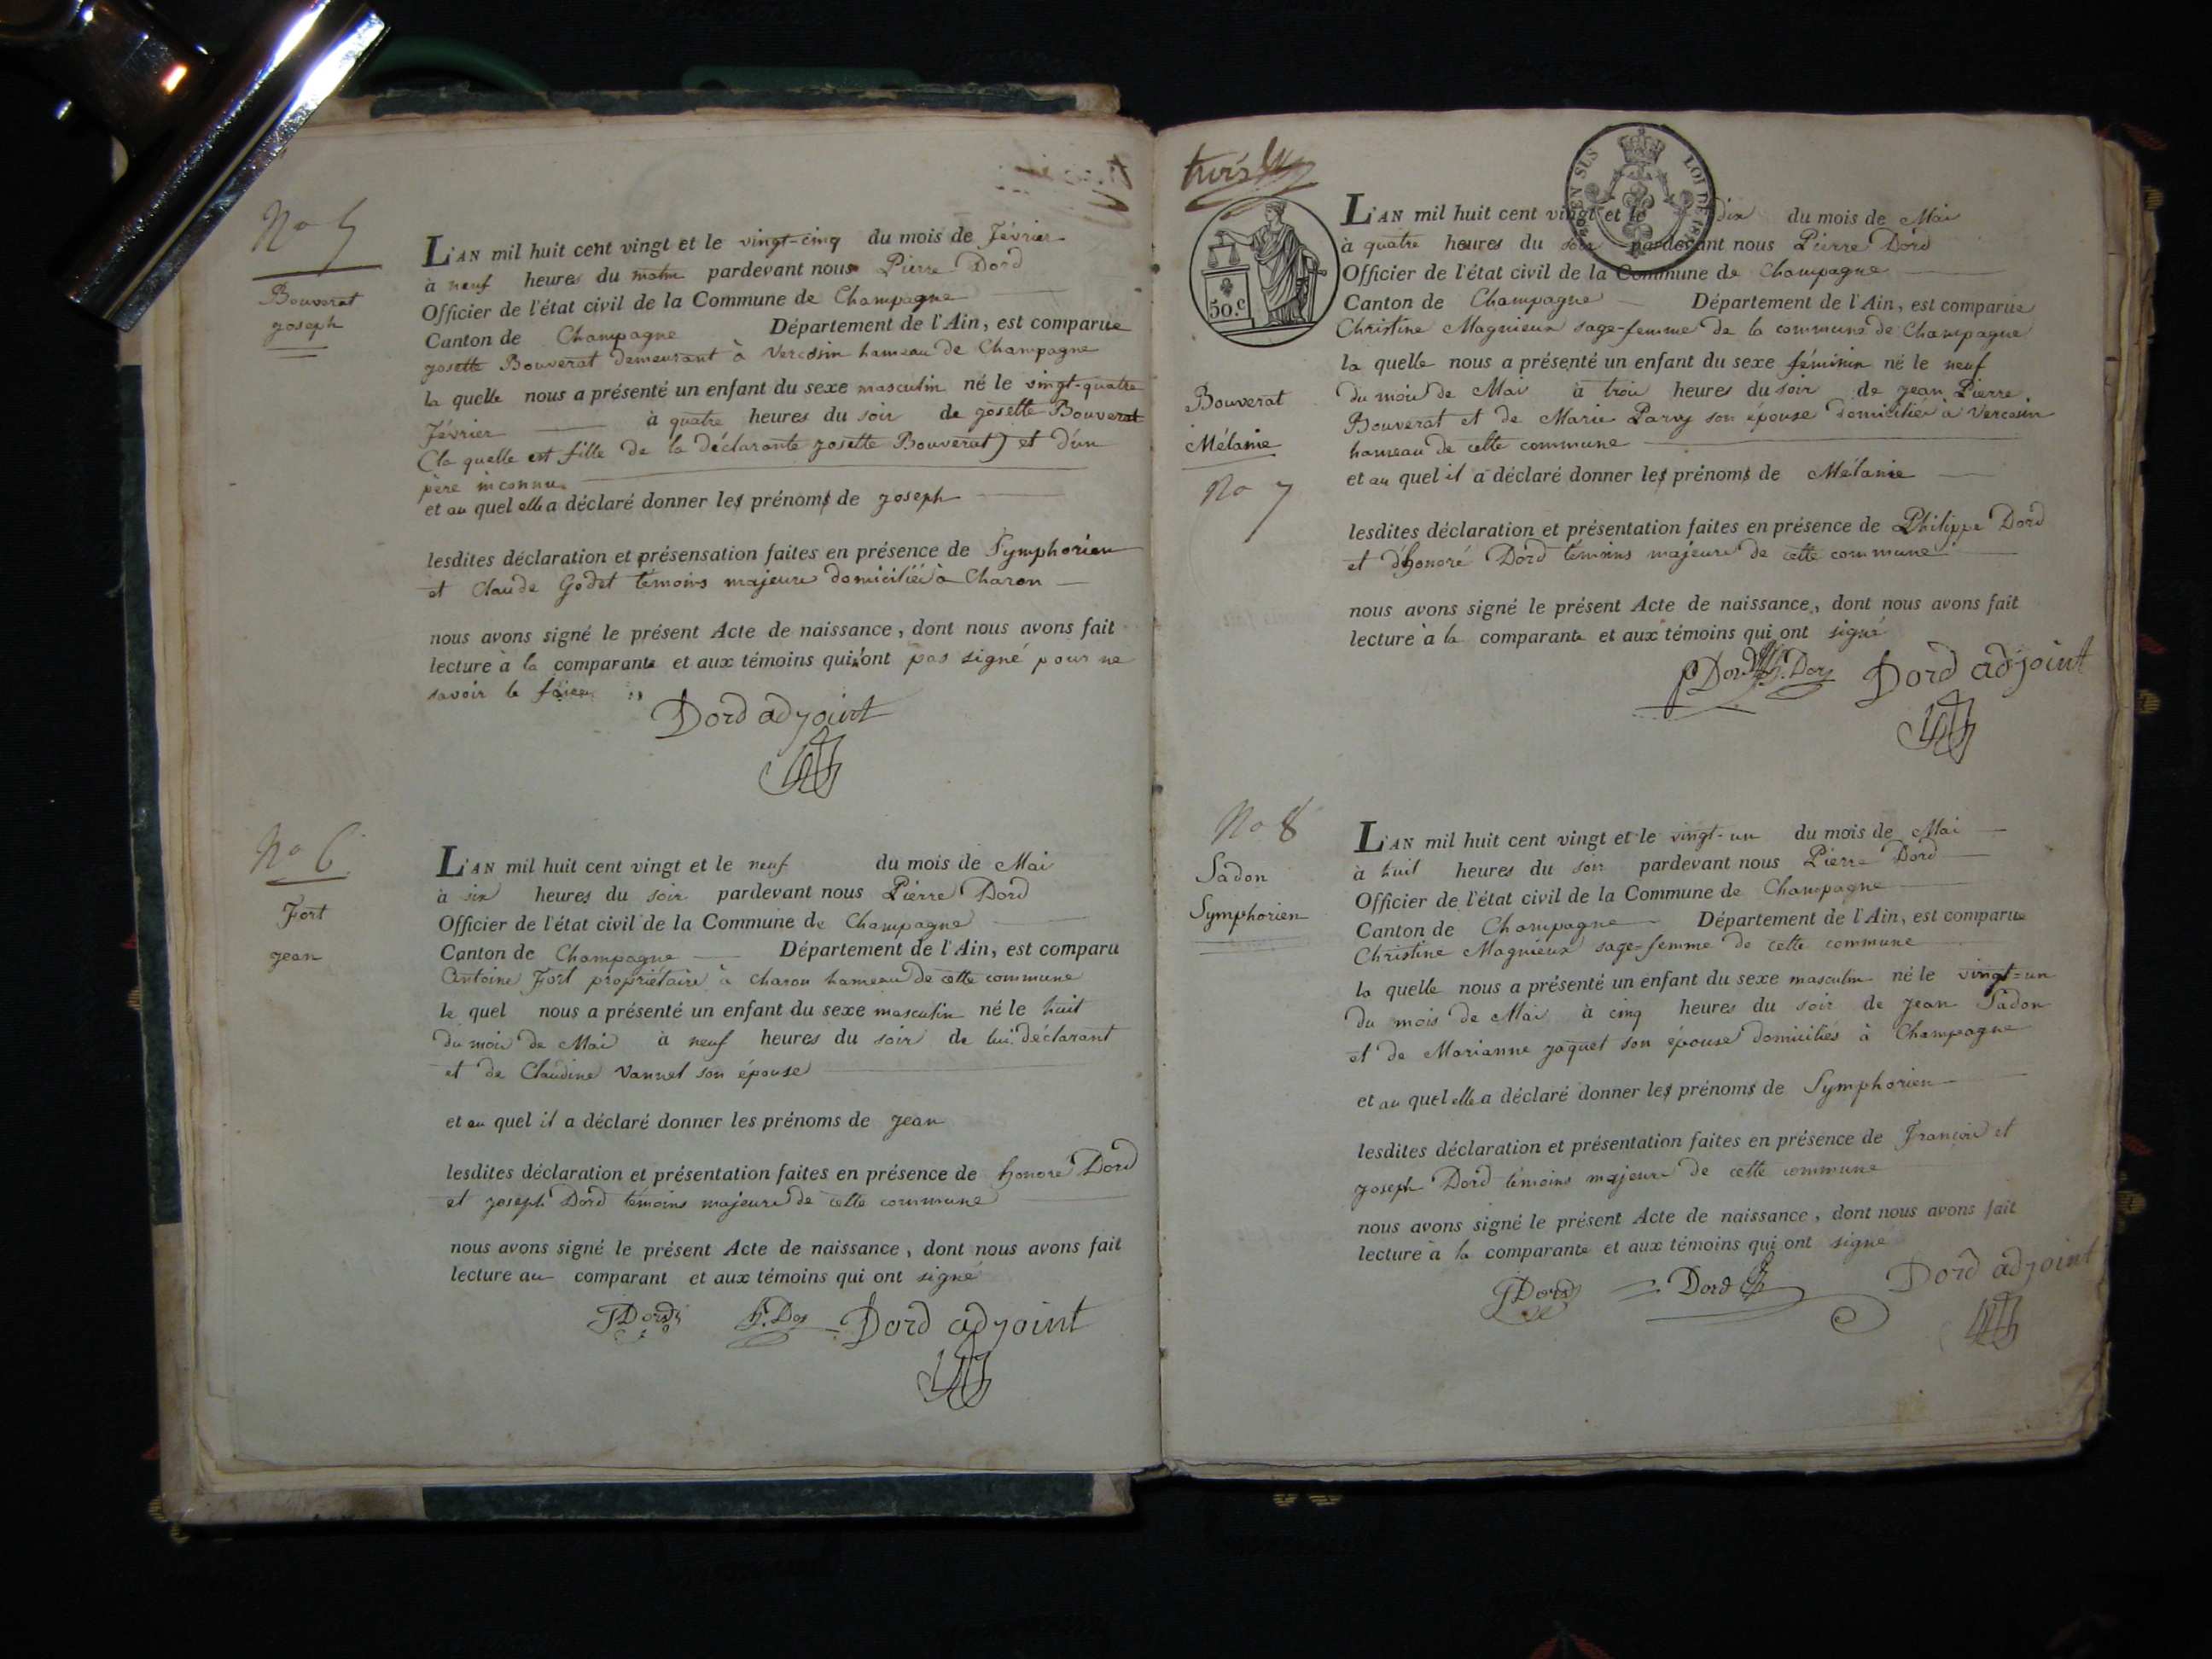 No 5
Bouverat
joseph
L'AN mil huit cent vingt et le vingt-cinq du mois de Février
à neuf heures du matin pardevant nous Pierre Dord
Officier de l'état civil de la Commune de Champagne
Canton de Champagne Département de l'Ain, est comparue
josette Bouverat demeurant à Vercosin hameau de Champagne
la quelle nous a présenté un enfant du sexe masculin né le vingt-quatre
Février à quatre heures du soir de josette Bouverat
(la quelle est fille de la déclarante josette Bouverat) et d'un
père inconnu
et au quel elle a déclaré donner les prénoms de joseph
lesdites déclaration et présensation faites en présence de Symphorien
et Claude Godet témoins majeurs domiciliés à Charon
nous avons signé le présent Acte de naissance, dont nous avons fait
lecture à la comparante et aux témoins qui n'ont pas signé pour ne
savoir le faire
Dord adjoint
No 6
Fort
jean
L'AN mil huit cent vingt et le neuf du mois de Mai
à six heures du soir pardevant nous Pierre Dord
Officier de l'état civil de la Commune de Champagne
Canton de Champagne Département de l'Ain, est comparu
Antoine Fort propriétaire à charon hameau de cette commune
le quel nous a présenté un enfant du sexe masculin né le huit
du mois de Mai à neuf heures du soir de lui déclarant
et de Claudine Vannel son épouse
et au quel il a déclaré donner les prénoms de jean
lesdites déclaration et présentation faites en présence de honoré Dord
et joseph Dord témoins majeurs de cette commune
nous avons signé le présent Acte de naissance, dont nous avons fait
lecture au comparant et aux témoins qui ont signé
JDord h. Dor Dord adjoint
trois
TIMBRE ROYAL
50.c
L'AN mil huit cent vingt et le dix du mois de Mai
à quatre heures du soir pardevant nous Pierre Dord
Officier de l'état civil de la Commune de Champagne
Canton de Champagne Département de l'Ain, est comparue
Christine Magnieux sage-femme de la commune de Champagne
la quelle nous a présenté un enfant du sexe féminin né le neuf
du mois de Mai à trois heures du soir de jean Pierre
Bouverat et de Marie Parvy son épouse domiciliés à Vercosin
hameau de cette commune
et au quel il a déclaré donner les prénoms de Mélanie
Bouverat
Mélanie
No 7
lesdites déclaration et présentation faites en présence de Philippe Dord
et d'honoré Dord témoins majeurs de cette commune
nous avons signé le présent Acte de naissance, dont nous avons fait
lecture à la comparante et aux témoins qui ont signé
P Dord h. Dor Dord adjoint
No 8
Sadon
Symphorien
L'AN mil huit cent vingt et le vingt-un du mois de Mai
à huit heures du soir pardevant nous Pierre Dord
Officier de l'état civil de la Commune de Champagne
Canton de Champagne Département de l'Ain, est comparue
Christine Magnieux sage-femme de cette commune
la quelle nous a présenté un enfant du sexe masculin né le vingt-un
du mois de Mai à cinq heures du soir de jean Sadon
et de Marianne jaquet son épouse domiciliés à Champagne
et au quel elle a déclaré donner les prénoms de Symphorien
lesdites déclaration et présentation faites en présence de François et
joseph Dord témoins majeurs de cette commune
nous avons signé le présent Acte de naissance, dont nous avons fait
lecture à la comparante et aux témoins qui ont signé
JDord Dord Dord adjoint